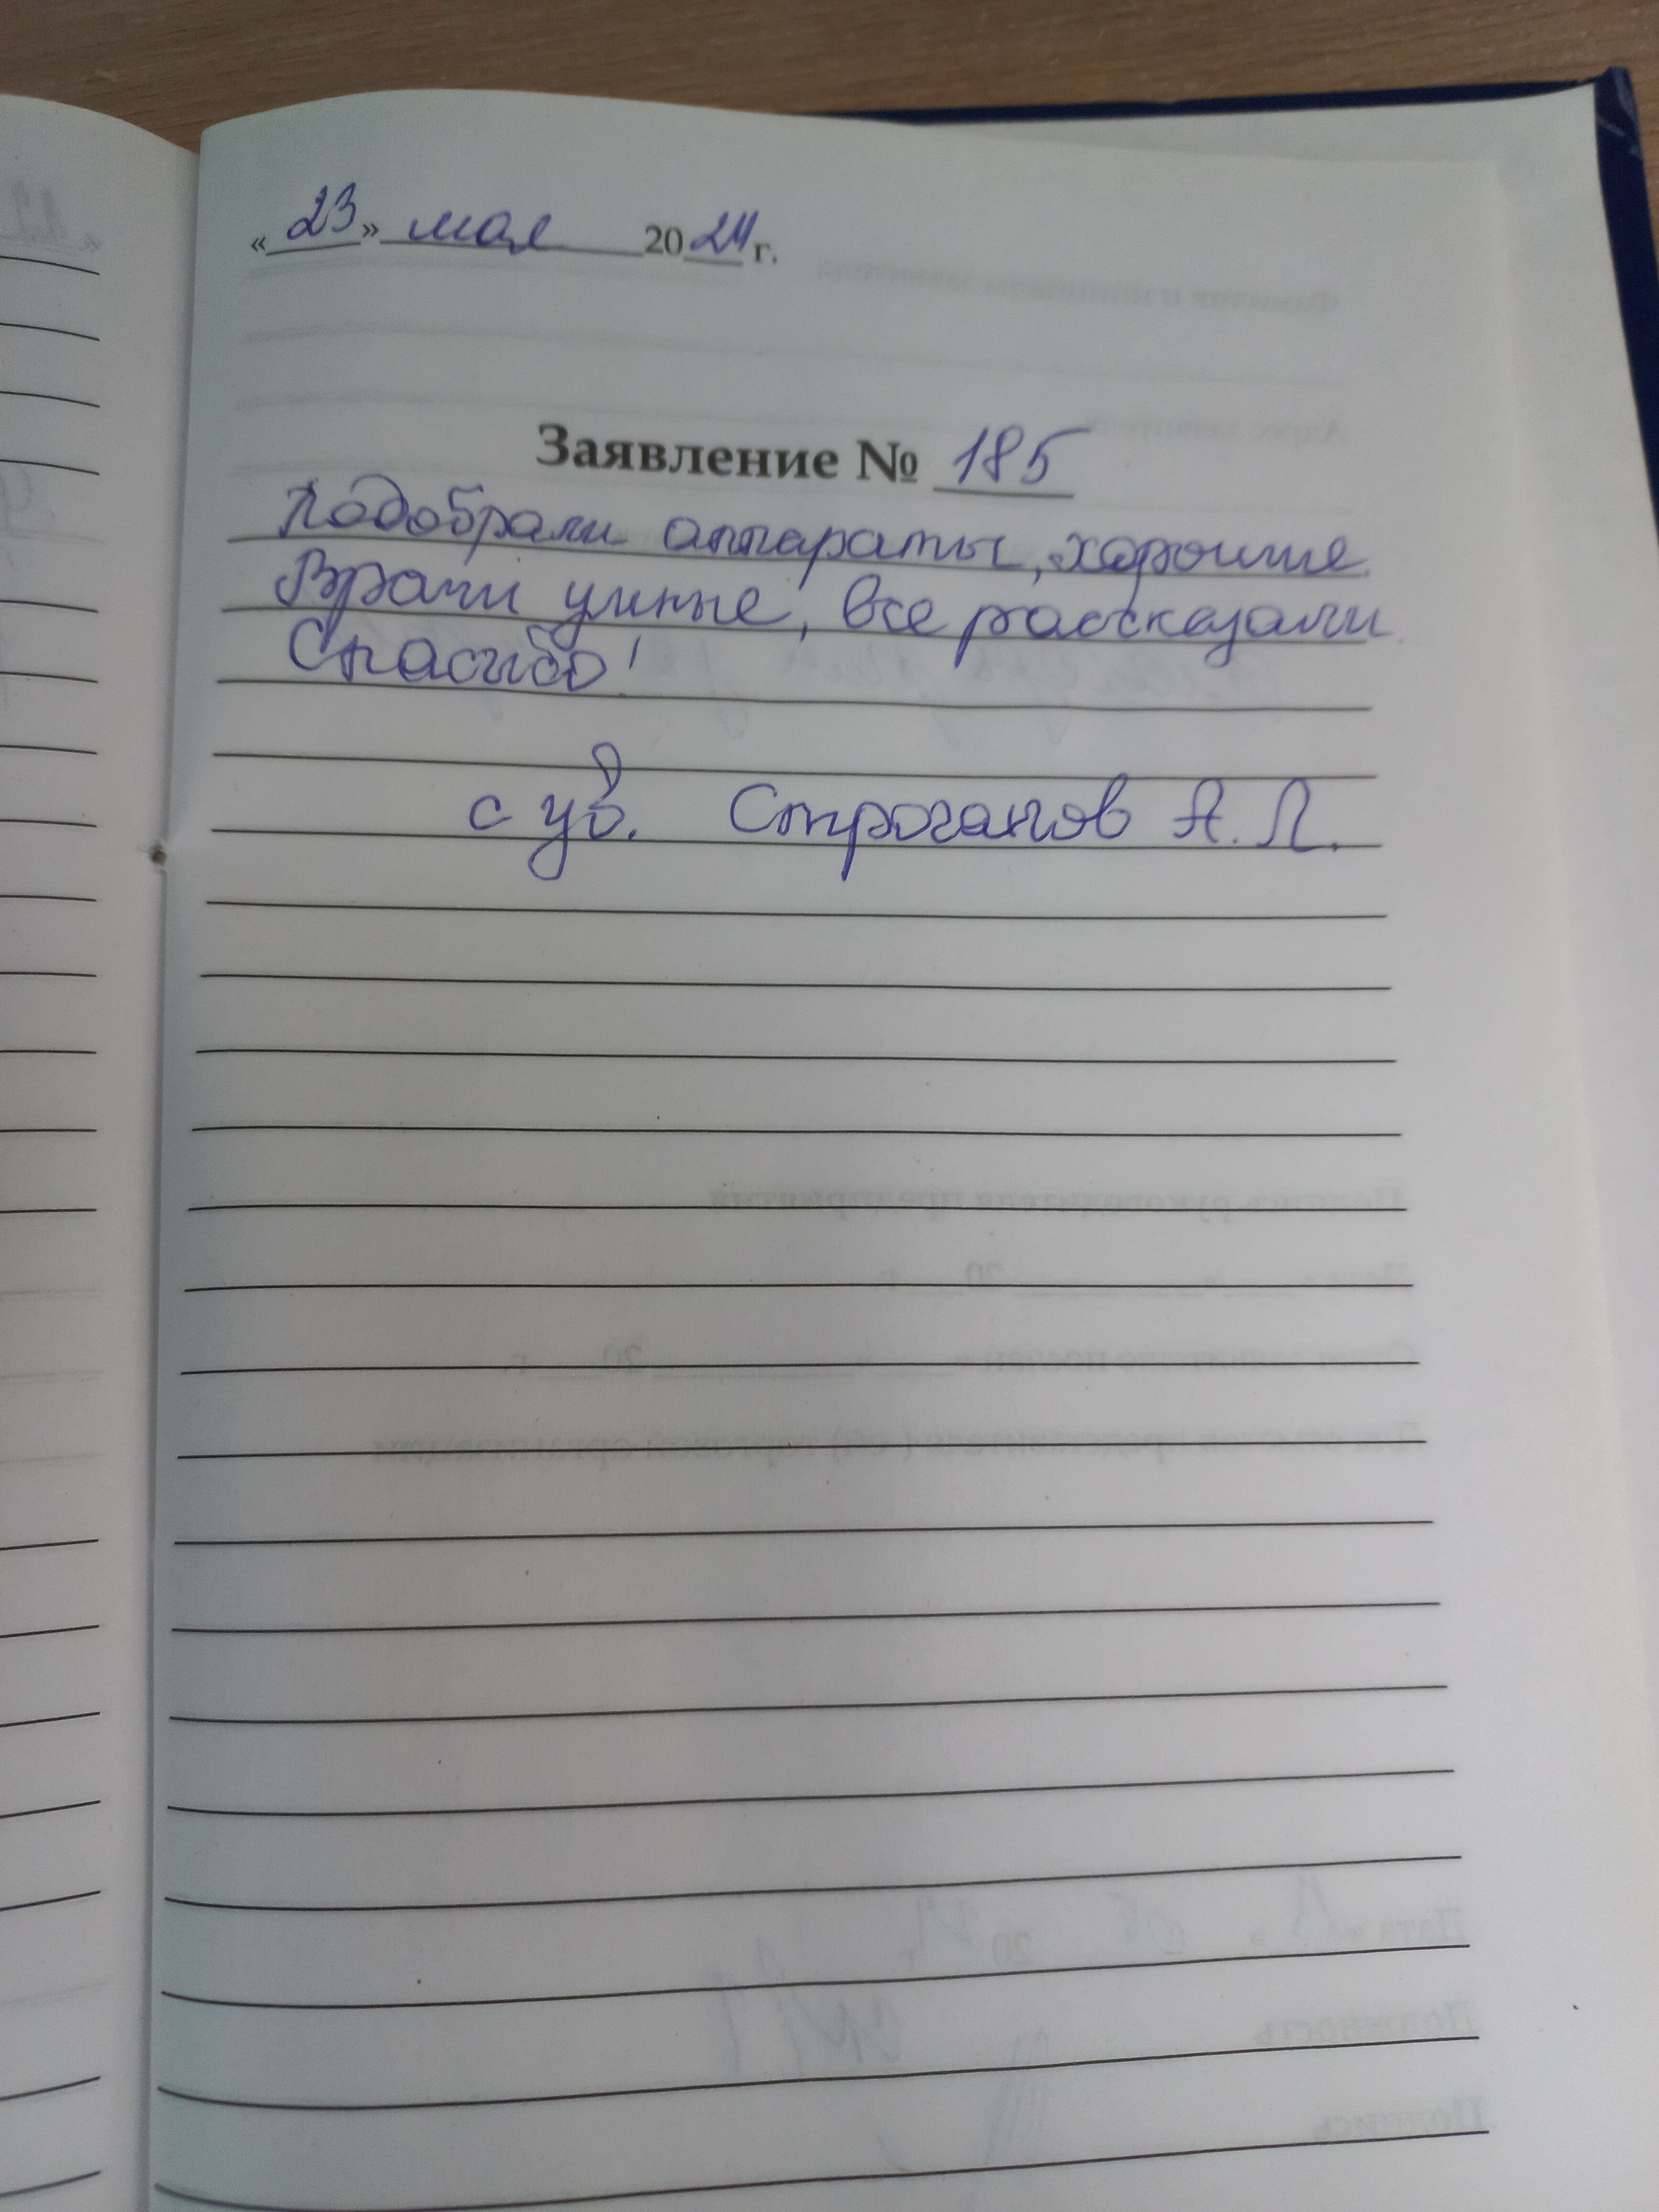 «23» мая 2024 г.
Заявление № 185
Подобрали аппараты, хорошие.
Врачи умные, все рассказали.
Спасибо!
с ув. Строганов А. Л.